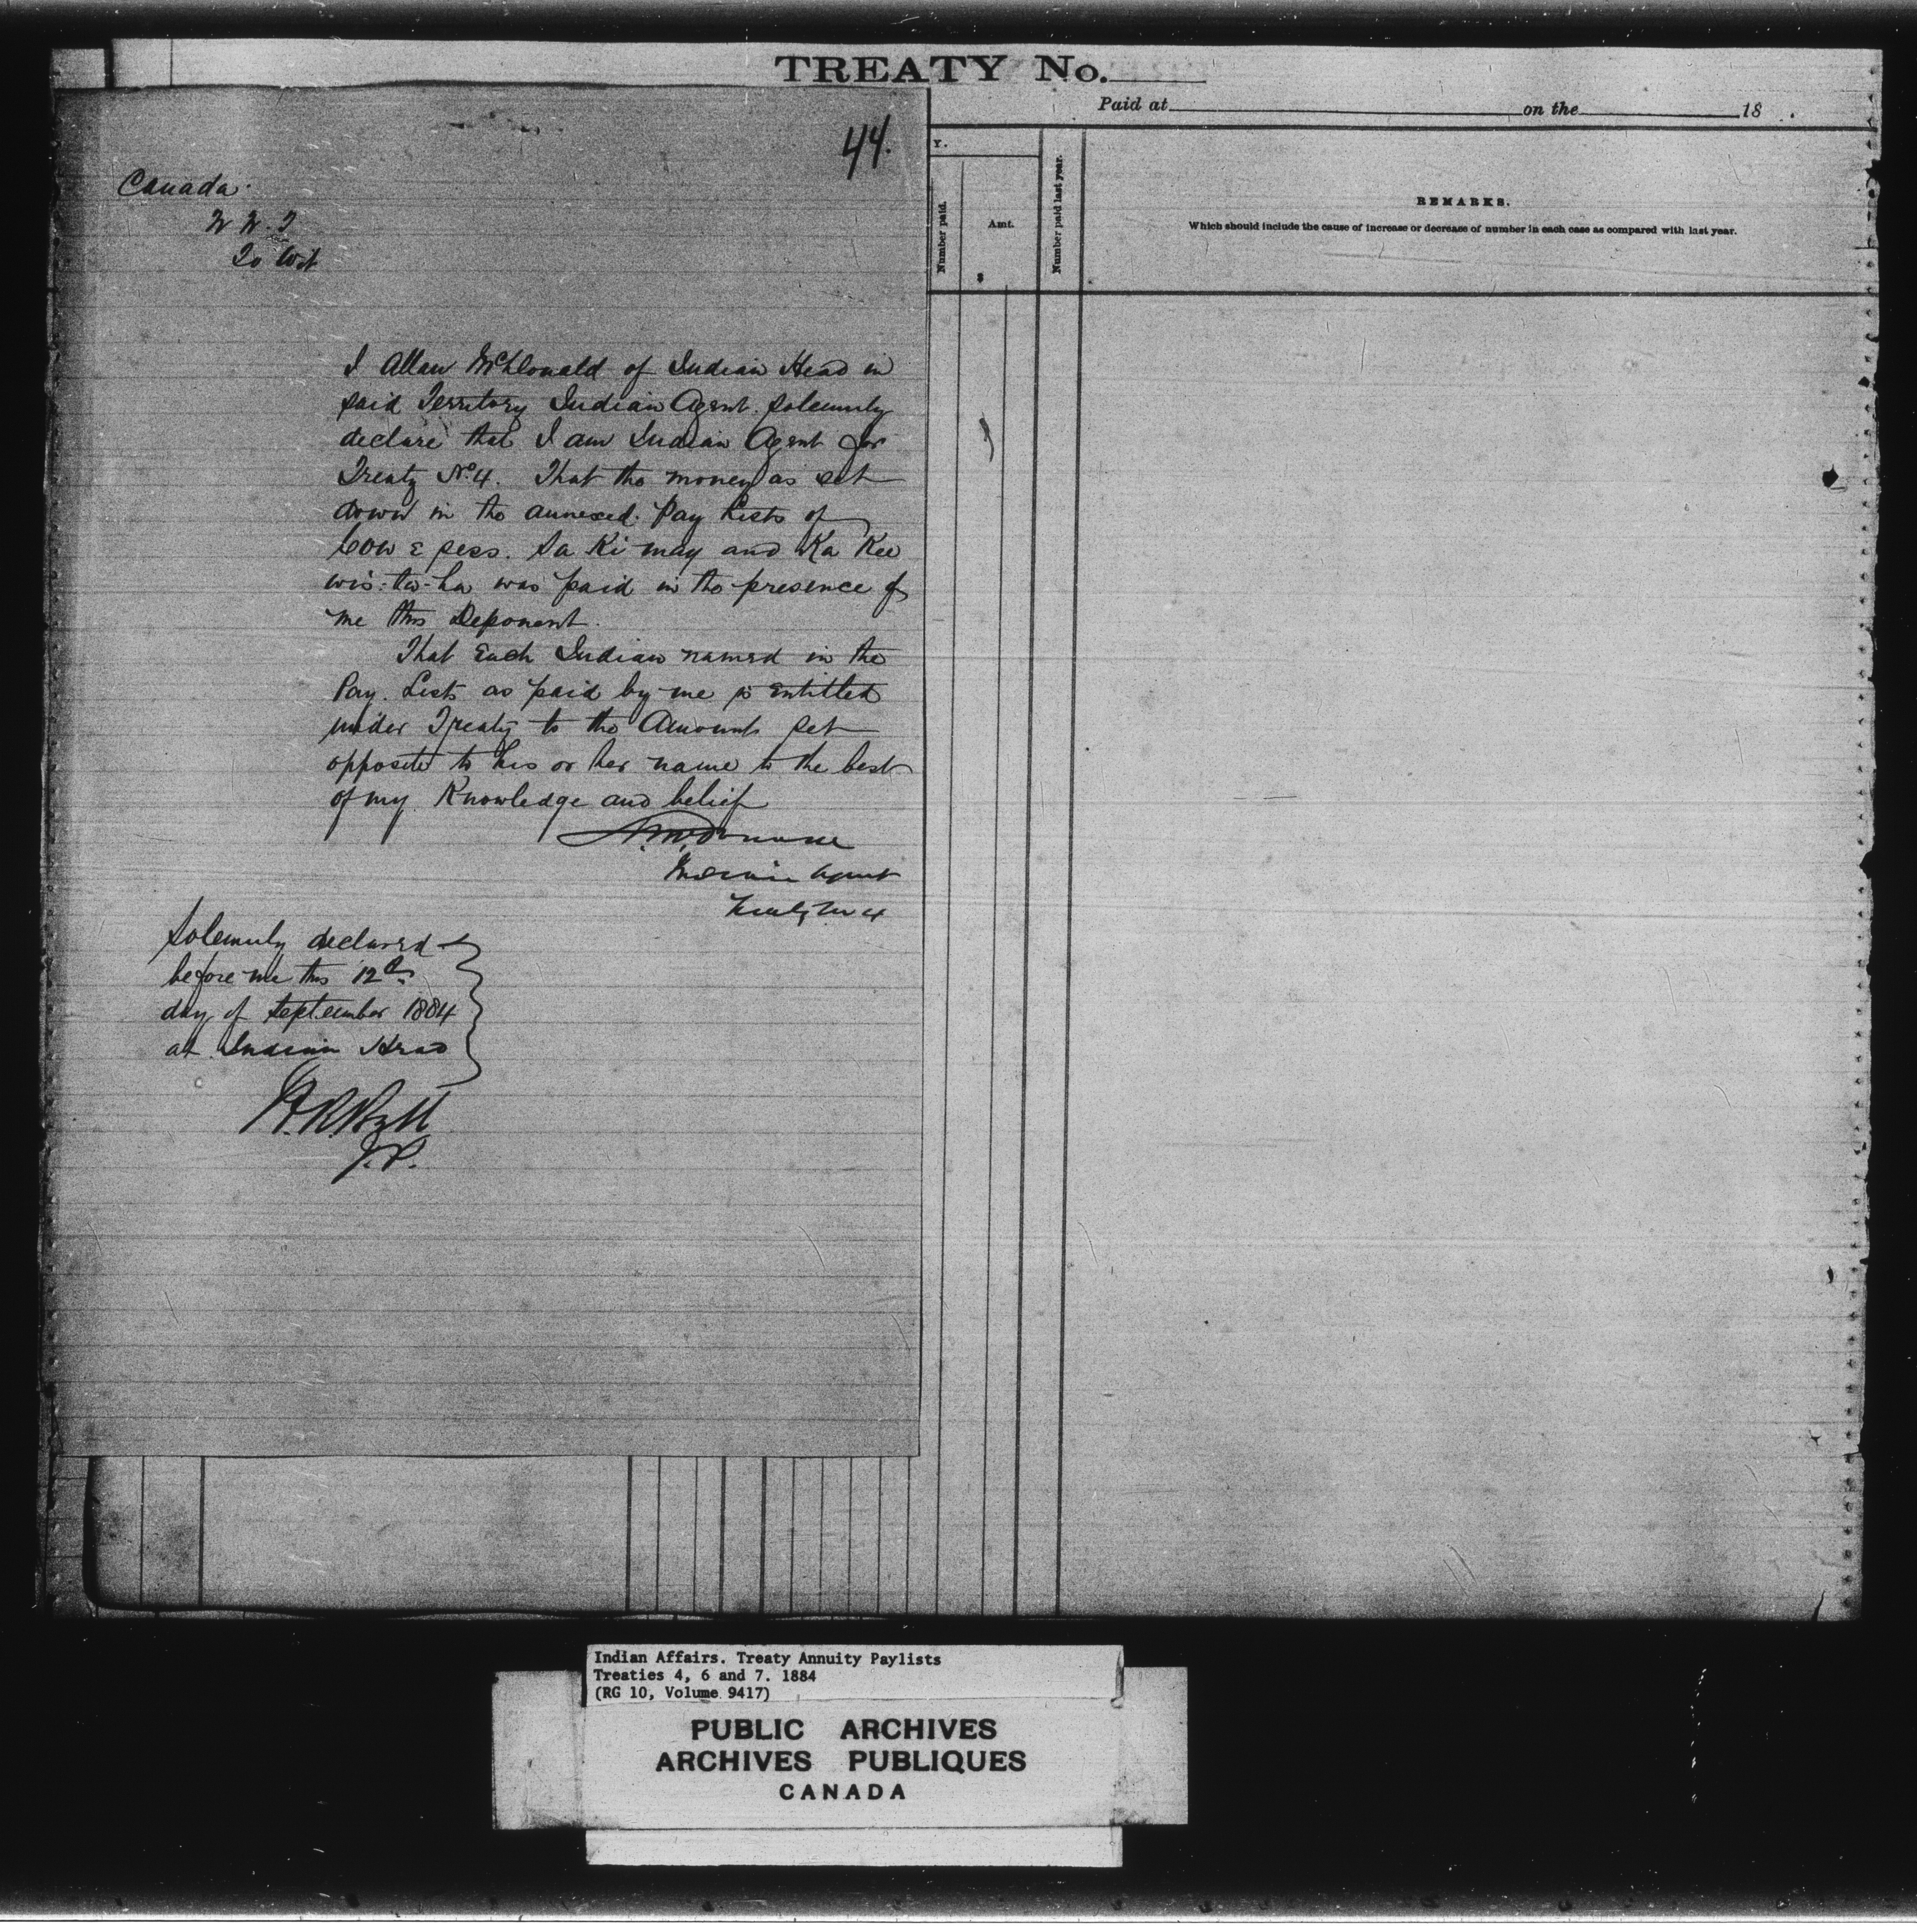 TREATY No.
Paid at on the 18 .
44.
Y.
Number paid.
Amt.
$
Number paid last year.
REMARKS.
Which should include the cause of increase or decrease of number in each case as compared with last year.
Canada.
To Wit
I Allan McDonald of Indian Head in
said Territory Indian Agent. Solemnly
declare that I am Indian Agent for
Treaty No. 4. That the money as set
down in the annexed Pay Lists of
Cow e sess. Sa Ki may and Ka Kee
wis-ta-ha was paid in the presence of
me this Deponent.
That Each Indian named in the
Pay. Lists as paid by me is Entitled
under Treaty to the Amounts set
opposite to his or her name to the best
of my Knowledge and belief
A. McDonald
Indian Agent
Treaty No 4
Solemnly declared
before me this 12th
day of September 1884
at Indian Head
J.P.
Indian Affairs. Treaty Annuity Paylists
Treaties 4, 6 and 7. 1884
(RG 10, Volume 9417)
PUBLIC ARCHIVES
ARCHIVES PUBLIQUES
CANADA